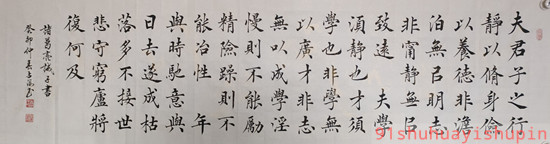 夫君子之行
靜以脩身儉
以養德非澹
泊無㠯明志
非甯靜無㠯
致遠 夫學
須靜也才須
學也非學無
以廣才非志
無㠯成學淫
慢則不能勵
精險躁則不
能冶性 年
與時馳意與
日去遂成枯
落多不接世
悲守窮廬將
復何及
諸葛亮誡子書
癸卯仲春
91shuhuayishupin